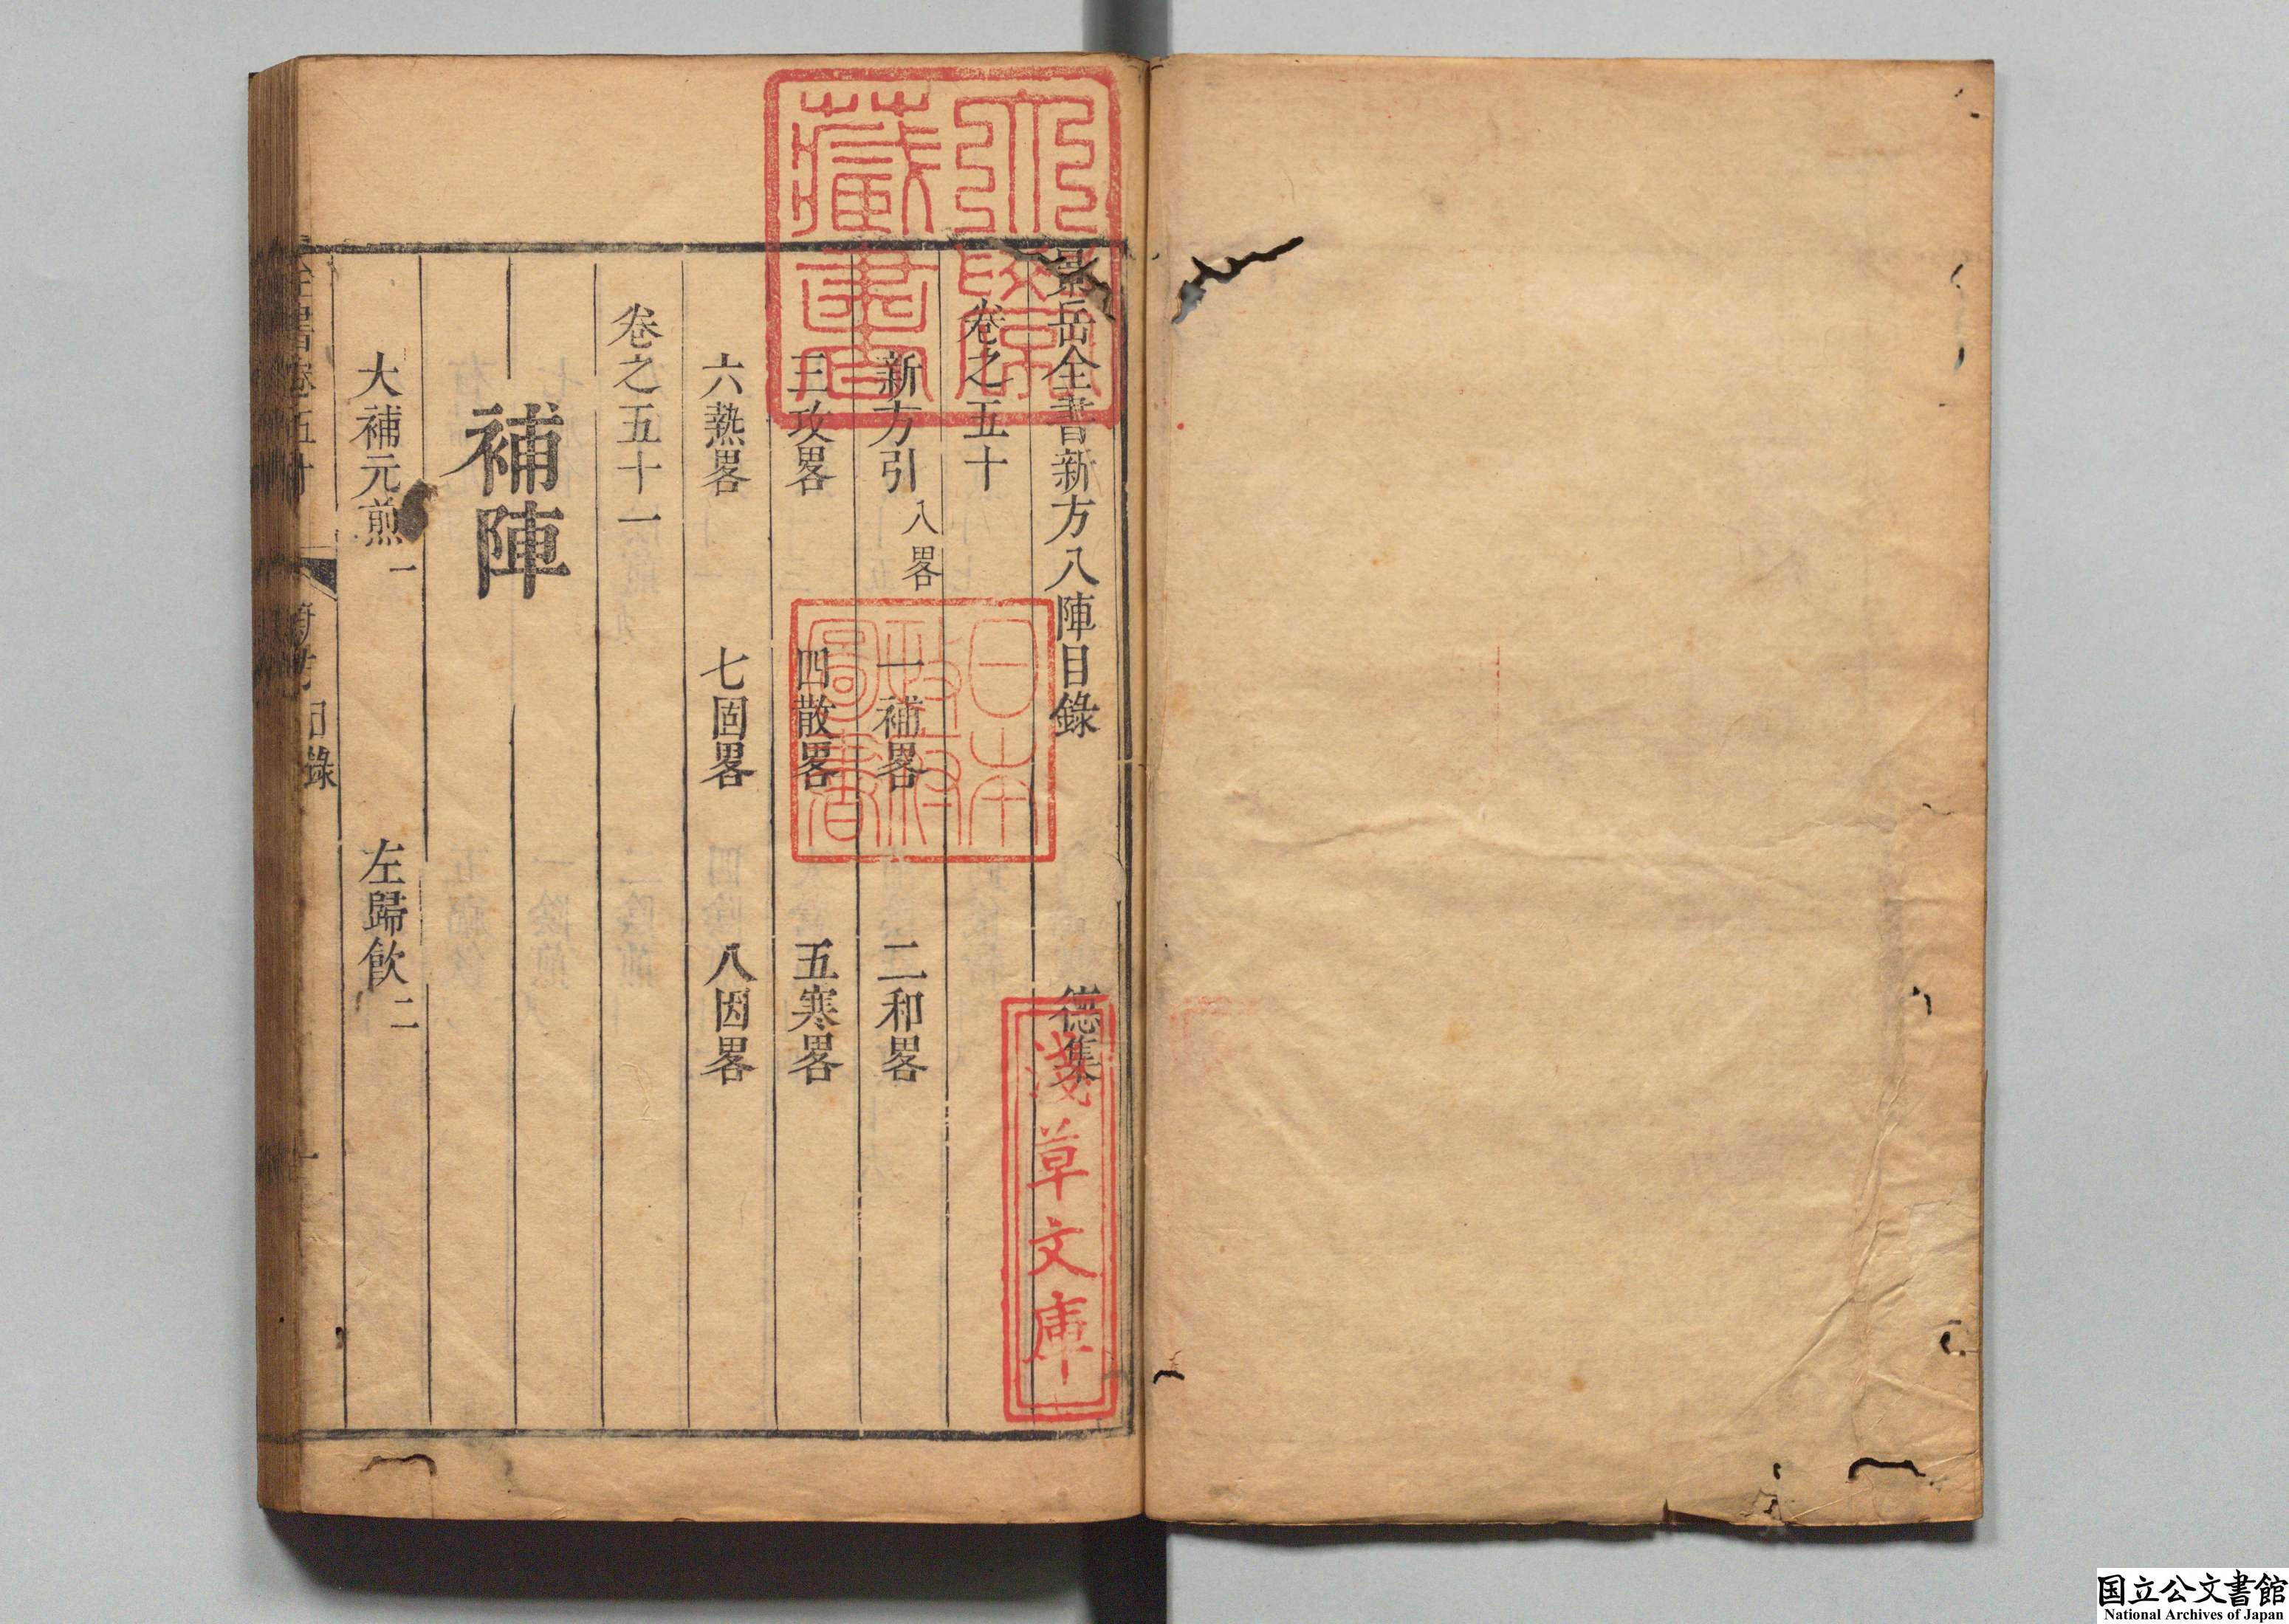 景岳全書新方八陣目錄　德集
卷之五十
新方引　八畧　一補畧　二和畧
三攻畧　四散畧　五寒畧
六熱畧　七固畧　八因畧
卷之五十一
補陣
大補元煎　一　左歸飲　二
全書卷五十　新方目錄　一
藏書
日本
政府
圖書
淺草文庫
国立公文書館
National Archives of Japan